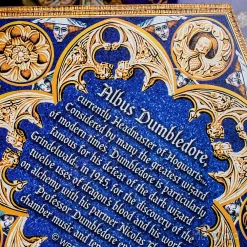 Albus Dumbledore,
currently Headmaster of Hogwarts.
Considered by many the greatest wizard
of modern times, Dumbledore is particularly
famous for his defeat of the dark wizard
Grindelwald in 1945, for the discovery of the
twelve uses of dragon's blood and his
on alchemy with his partner, Nicolas
Professor Dumbledore enjoys
chamber music and